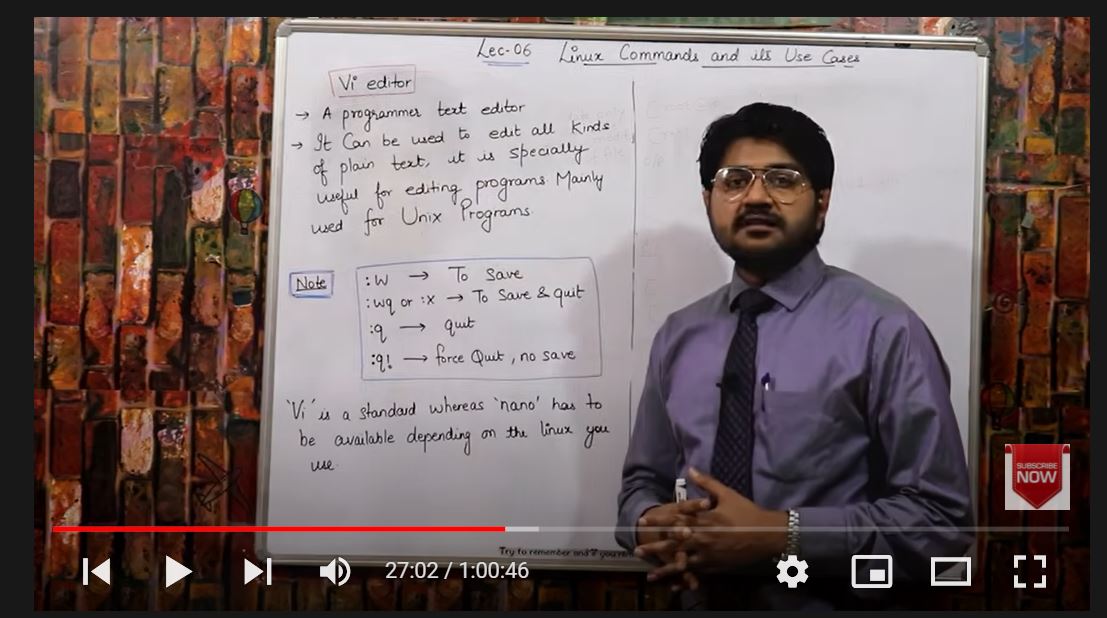 Lec-06 Linux Commands and its Use Cases
Vi editor
→ A programmer text editor
→ It Can be used to edit all kinds
of plain text, it is specially
useful for editing programs. Mainly
used for Unix Programs.
Note
:w → To Save
:wq or :x → To Save & quit
:q → quit
:q! → force Quit, no save
'Vi' is a standard whereas 'nano' has to
be available depending on the linux you
use.
SUBSCRIBE
NOW
Try to remember and
27:02 / 1:00:46